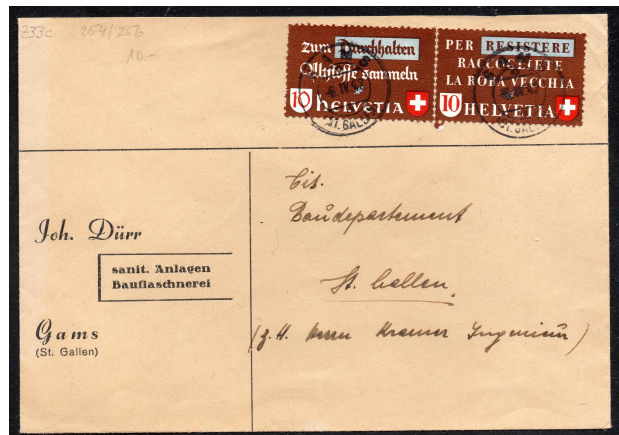 Z33c 254/256
10.-
zum Durchhalten
Altstoffe sammeln
10 HELVETIA
PER RESISTERE
RACCOGLIETE
LA ROBA VECCHIA
10 HELVETIA
GAMS
(ST. GALLEN)
Joh. Dürr
sanit. Anlagen
Bauflaschnerei
Gams
(St. Gallen)
Tit.
Baudepartement
St. Gallen.
(z. H. Herrn Kramer Ingenieur)